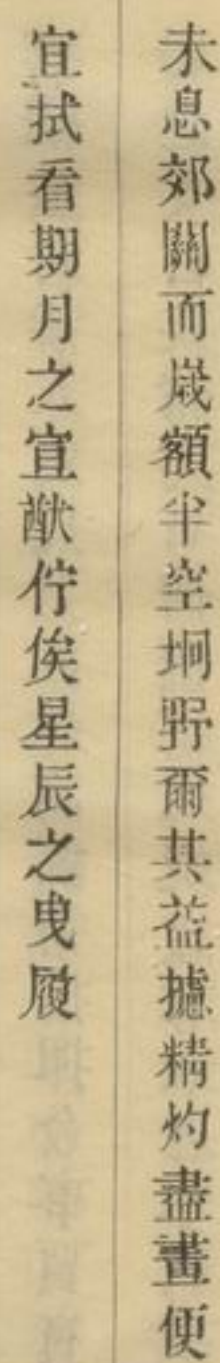 未息郊關而歲額半空坰野爾其益攄精灼盡畫便
宜拭看期月之宣猷佇俟星辰之曳履